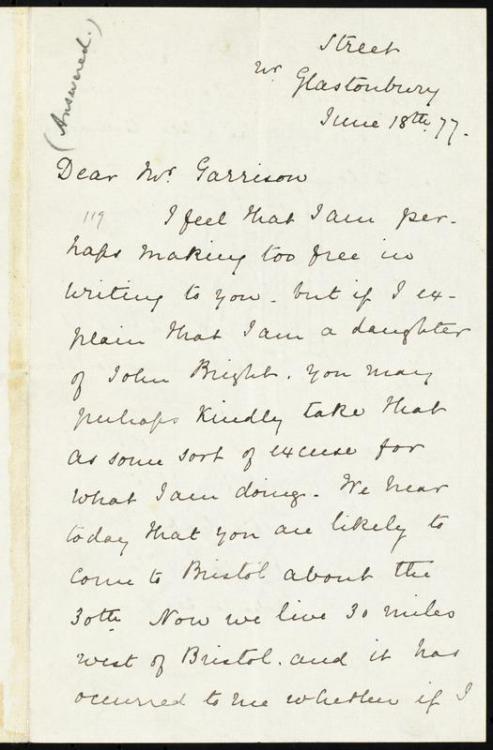 (Answered.)
Street
Nr. Glastonbury
June 18th. 77.
Dear Mr. Garrison
119
I feel that I am per-
haps making too free in
writing to you. but if I ex-
plain that I am a daughter
of John Bright. you may
perhaps kindly take that
as some sort of excuse for
what I am doing. We hear
today that you are likely to
come to Bristol about the
30th. Now we live 30 miles
west of Bristol. and it has
occurred to me whether if I